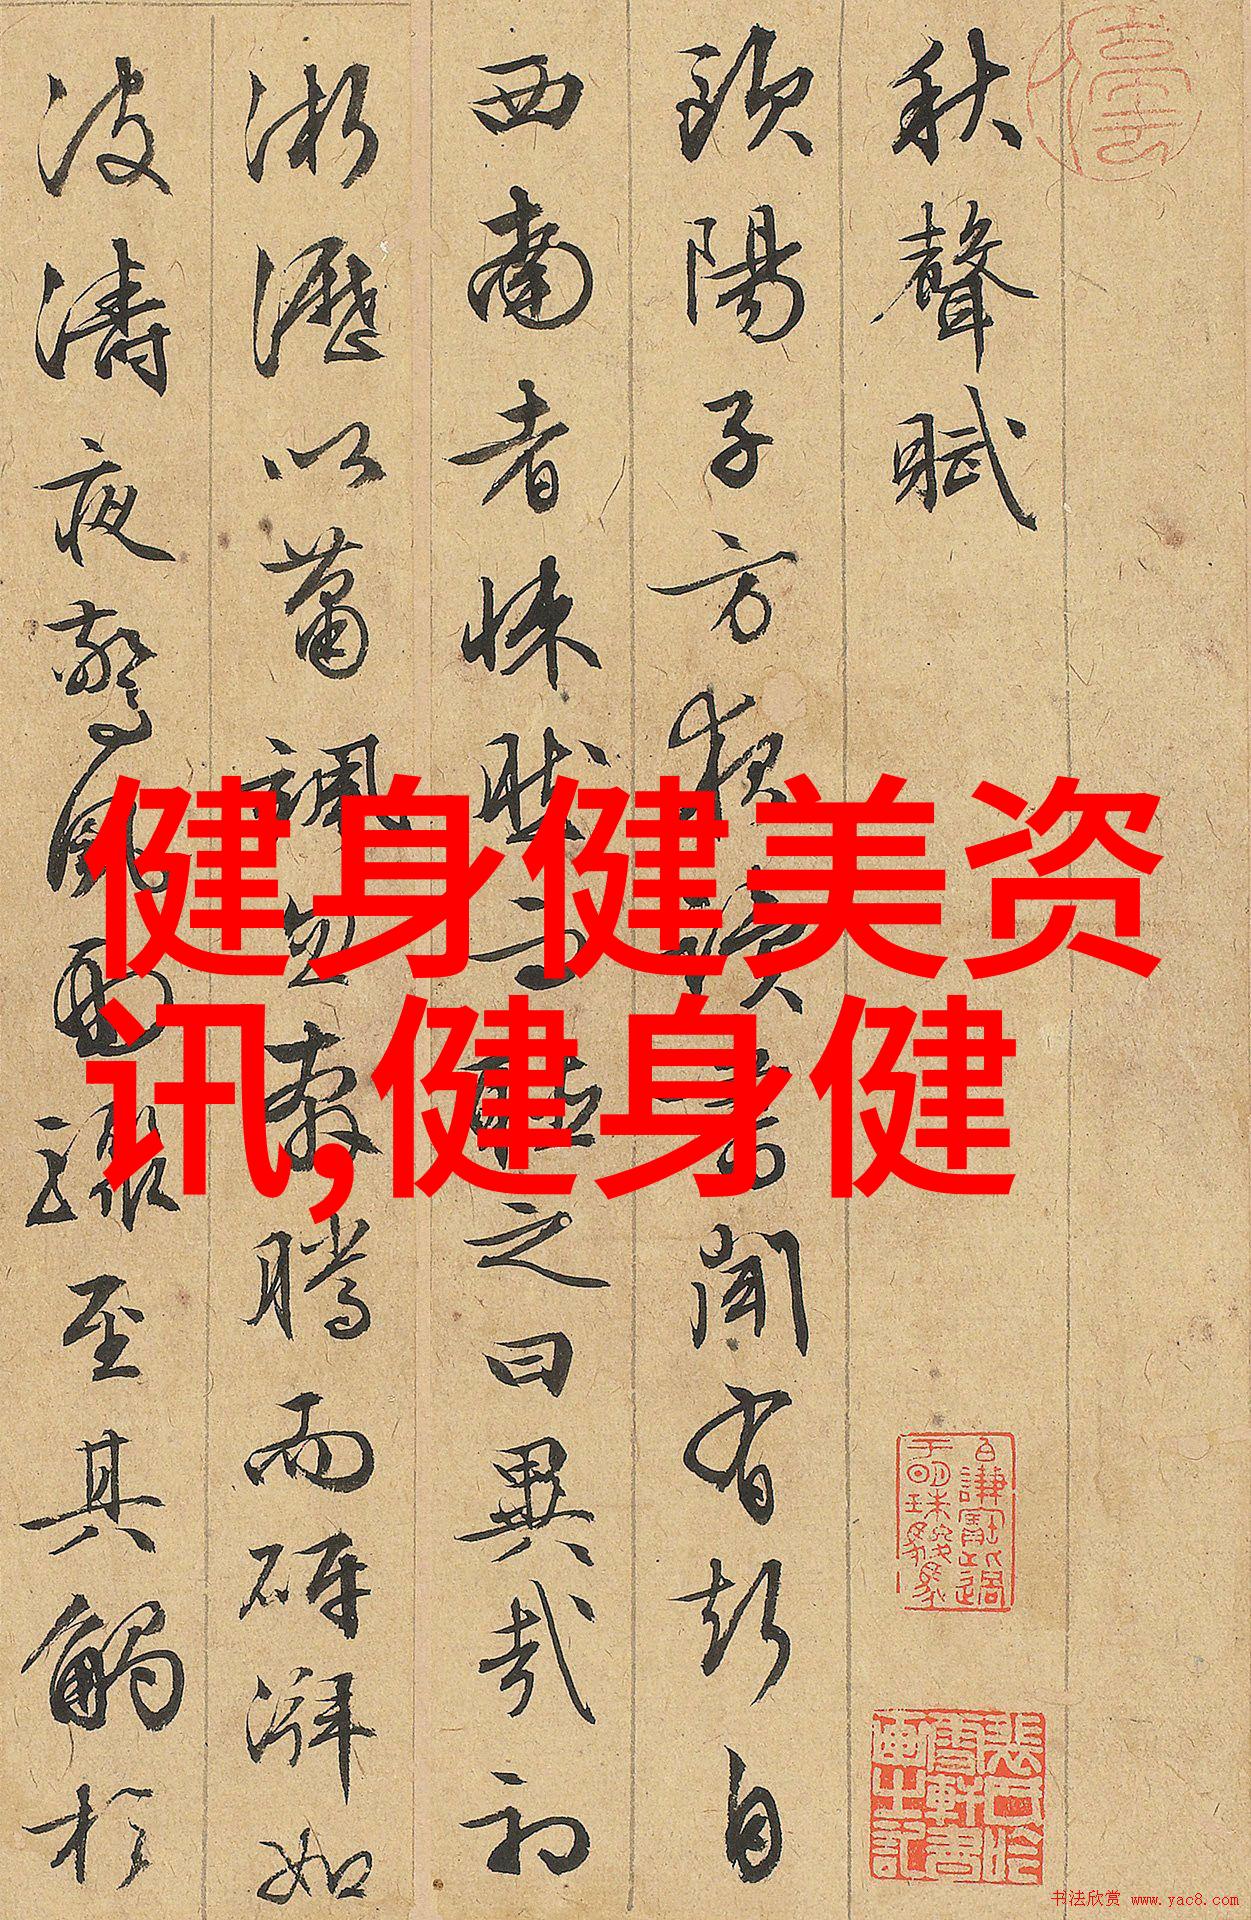 秋聲賦
歐陽子方夜讀書聞有聲自
西南者悚然而聽之曰異哉初
淅瀝以蕭忽奔騰而砰湃如
波濤夜驚風雨驟至其觸於
健身健美资
讯,健身健
书法欣赏 www.yac8.com